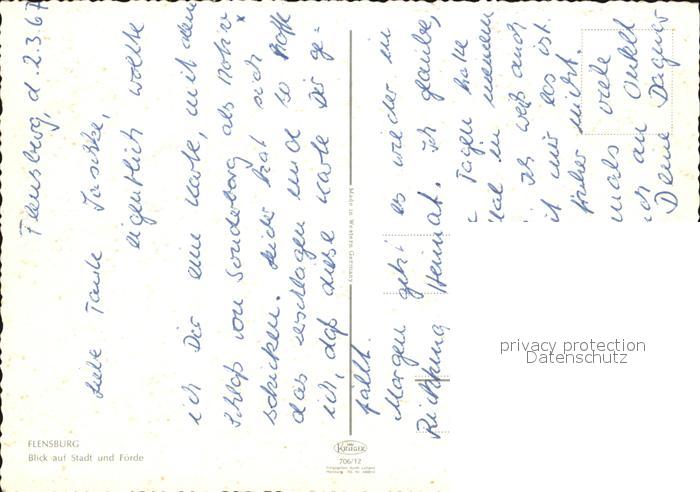 Flensburg, d. 2.3.67
Liebe Tante Taschke,
eigentlich wollte
ich Dir eine Karte, mit dem
Schloß von Sonderburg als Motiv
schicken. Leider hat sich
das zerschlagen und so hoffe
ich, daß diese Karte Dir ge-
fällt.
Morgen geht es wieder in
Richtung Heimat. ich glaube,
Tagen habe
Mal in meinem
ich weiß auch
mir las ist.
früher nicht.
mals viele
ich an Onkel
Deine Dagmar
Made in Western Germany
FLENSBURG
Blick auf Stadt und Förde
KRÜGER
706/12
privacy protection
Datenschutz